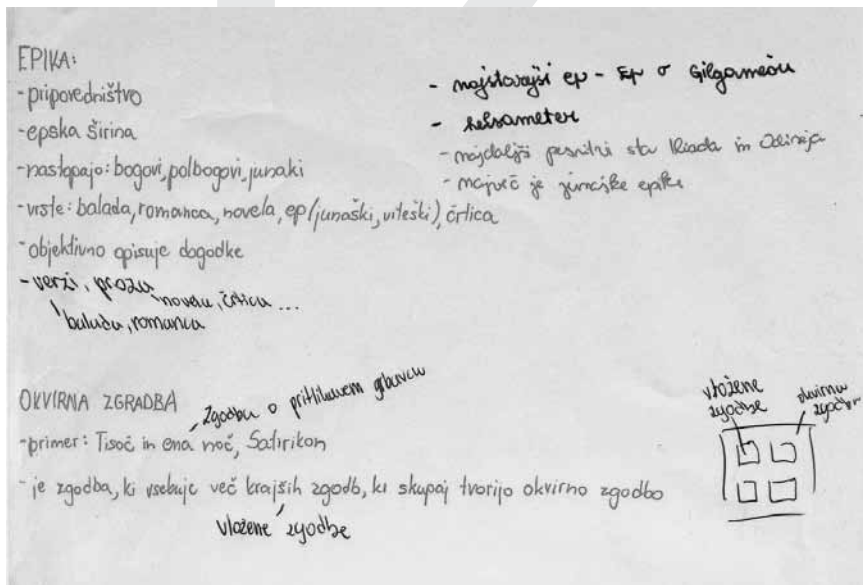 EPIKA:
- pripovedništvo
- epska širina
- nastopajo: bogovi, polbogovi, junaki
- vrste: balada, romanca, novela, ep (junaški, viteški), črtica
- objektivno opisuje dogodke
- verzi, proza
novela, črtica ...
balada, romanca
- najstarejši ep - Ep o Gilgamešu
- heksameter
- najdaljši pesnitvi sta Iliada in Odiseja
- največ je junaške epike
OKVIRNA ZGRADBA
Zgodba o pritlikavem grbavcu
- primer: Tisoč in ena noč, Satirikon
- je zgodba, ki vsebuje več krajših zgodb, ki skupaj tvorijo okvirno zgodbo
vložene zgodbe
vložene zgodbe
okvirna zgodba